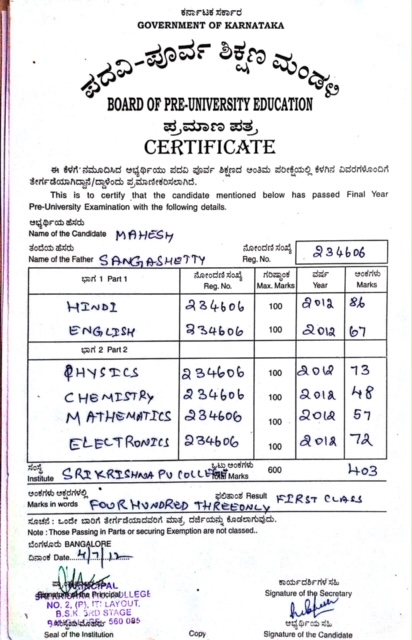 ಕರ್ನಾಟಕ ಸರ್ಕಾರ
GOVERNMENT OF KARNATAKA
ಪದವಿ-ಪೂರ್ವ ಶಿಕ್ಷಣ ಮಂಡಳಿ
BOARD OF PRE-UNIVERSITY EDUCATION
ಪ್ರಮಾಣ ಪತ್ರ
CERTIFICATE
ಈ ಕೆಳಗೆ ನಮೂದಿಸಿದ ಅಭ್ಯರ್ಥಿಯು ಪದವಿ ಪೂರ್ವ ಶಿಕ್ಷಣದ ಅಂತಿಮ ಪರೀಕ್ಷೆಯಲ್ಲಿ ಕೆಳಗಿನ ವಿವರಗಳೊಂದಿಗೆ
ತೇರ್ಗಡೆಯಾಗಿದ್ದಾನೆ/ದ್ದಾಳೆಂದು ಪ್ರಮಾಣೀಕರಿಸಲಾಗಿದೆ.
This is to certify that the candidate mentioned below has passed Final Year
Pre-University Examination with the following details.
ಅಭ್ಯರ್ಥಿಯ ಹೆಸರು
Name of the Candidate MAHESH
ತಂದೆಯ ಹೆಸರು ನೋಂದಣಿ ಸಂಖ್ಯೆ
Name of the Father SANGASHETTY Reg. No. 234606
ಭಾಗ 1 Part 1 ನೋಂದಣಿ ಸಂಖ್ಯೆ Reg. No. ಗರಿಷ್ಠಾಂಕ Max. Marks ವರ್ಷ Year ಅಂಕಗಳು Marks
HINDI 234606 100 2012 86
ENGLISH 234606 100 2012 67
ಭಾಗ 2 Part 2
PHYSICS 234606 100 2012 73
CHEMISTRY 234606 100 2012 48
MATHEMATICS 234606 100 2012 57
ELECTRONICS 234606 100 2012 72
ಸಂಸ್ಥೆ ಒಟ್ಟು ಅಂಕಗಳು
Institute SRI KRISHNA PU COLLEGE Total Marks 600 403
ಅಂಕಗಳು ಅಕ್ಷರಗಳಲ್ಲಿ ಫಲಿತಾಂಶ Result FIRST CLASS
Marks in words FOUR HUNDRED THREE ONLY
ಸೂಚನೆ : ಒಂದೇ ಬಾರಿಗೆ ತೇರ್ಗಡೆಯಾದವರಿಗೆ ಮಾತ್ರ ದರ್ಜೆಯನ್ನು ಕೊಡಲಾಗುವುದು.
Note : Those Passing in Parts or securing Exemption are not classed..
ಬೆಂಗಳೂರು BANGALORE
ದಿನಾಂಕ Date 4/7/12
PRINCIPAL ಕಾರ್ಯದರ್ಶಿಗಳ ಸಹಿ
Signature of the Principal COLLEGE Signature of the Secretary
NO. 2, (P), ITI LAYOUT,
B.S.K. 3RD STAGE
560 085 ಅಭ್ಯರ್ಥಿಯ ಸಹಿ
Seal of the Institution Copy Signature of the Candidate